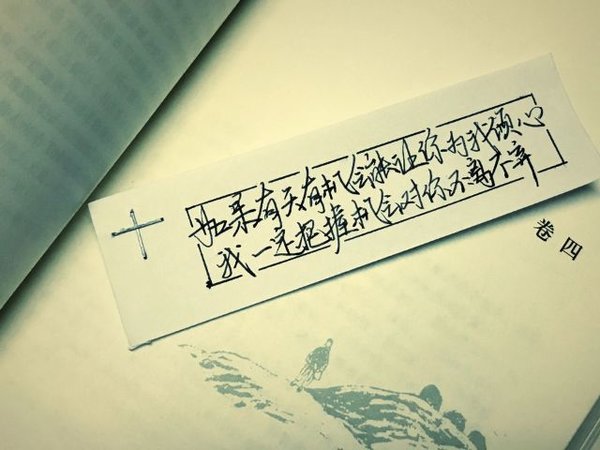 如果有天有机会能让你为我倾心
我一定把握机会对你不离不弃
卷四